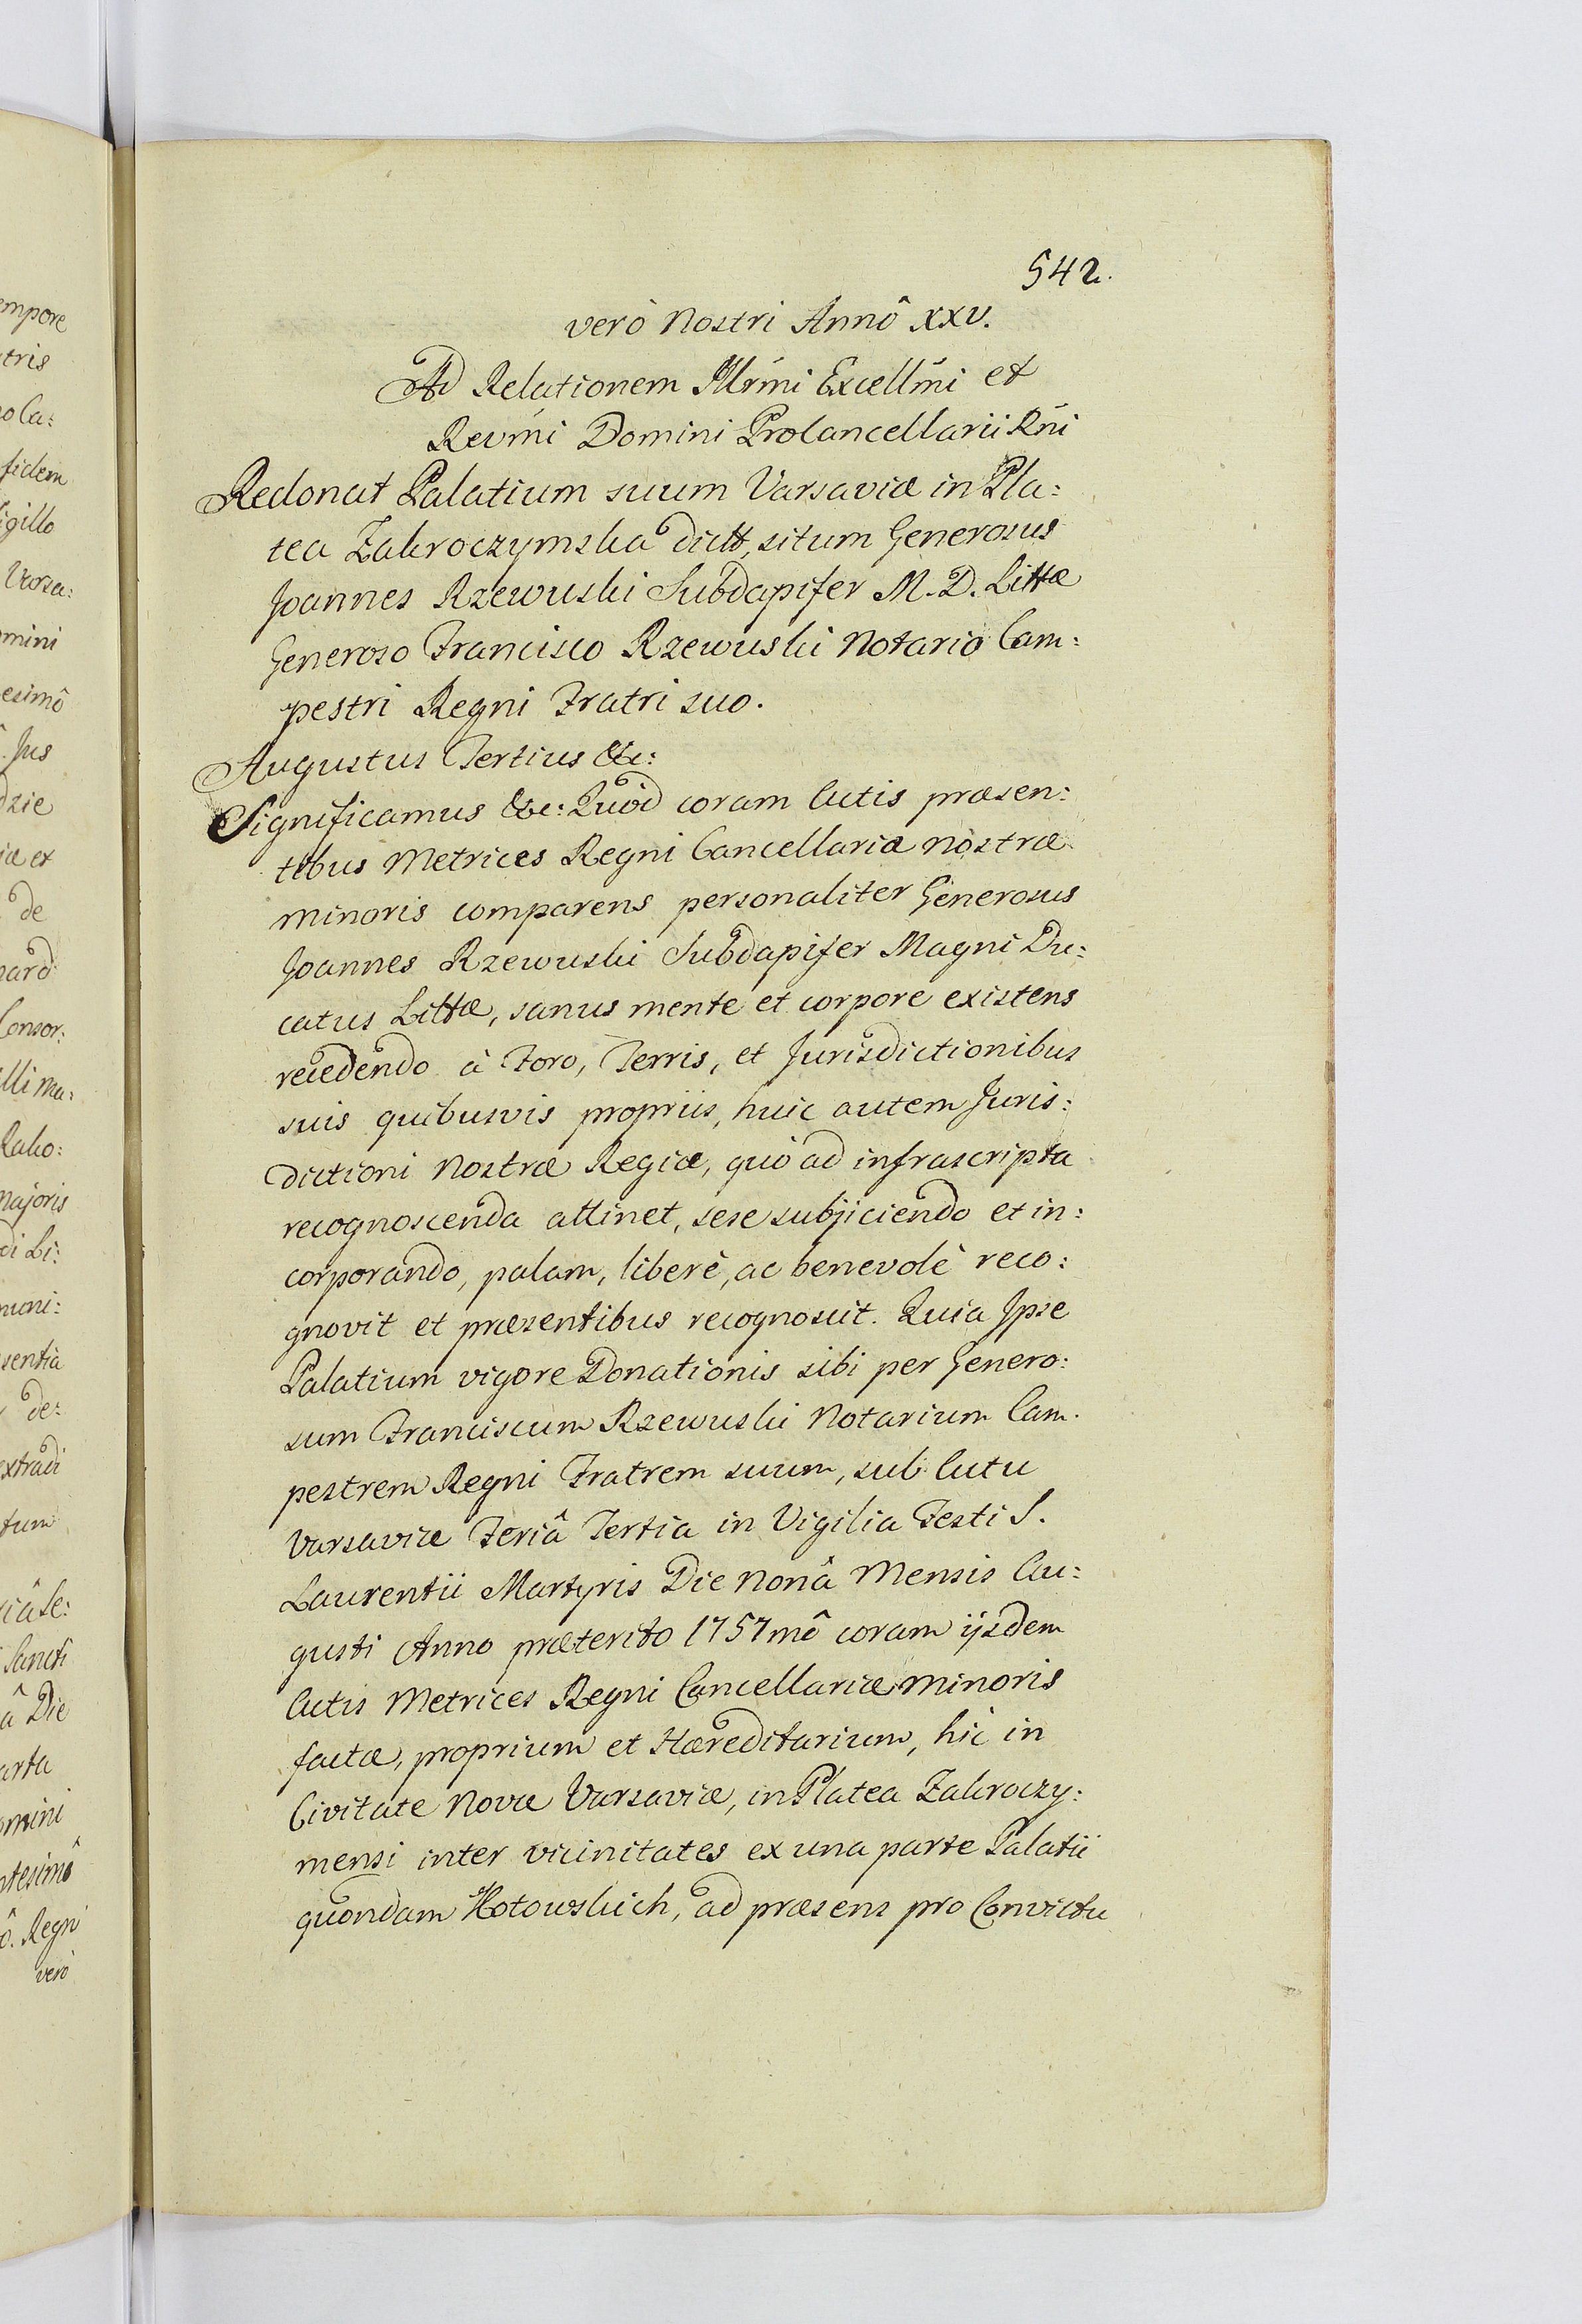 542.
verò Nostri Annô XXV.
Ad Relationem Illr̃mi Excellm̃i et
Revm̃i Domini ProCancellarii Rñi
Redonat Palatium suum Varsaviæ in Pla:
tea Zakroczymska dictt, situm Generosus
Joannes Rzewuski Subdapifer M. D. Littæ
Generoso Francisco Rzewuski Notario Cam:
pestri Regni Fratri suo.
Augustus Tertius &c:
Significamus &c: Quòd coram Actis præsen:
tibus Metrices Regni Cancellariæ nostræ
minoris comparens personaliter Generosus
Joannes Rzewuski Subdapifer Magni Du:
catus Littæ, sanus mente et corpore existens
recedendo à Foro, Terris, et Jurisdictionibus
suis quibusvis propriis, huic autem Juris:
dictioni Nostræ Regiæ, quò ad infrascripta
recognoscenda attinet, sese subjiciendo et in:
corporando, palam, liberè, ac benevolè reco:
gnovit et præsentibus recognoscit. Quia Ipse
Palatium vigore Donationis sibi per Genero:
sum Franciscum Rzewuski Notarium Cam.
pestrem Regni Fratrem suum, sub Actu
Varsaviæ Feriâ Tertia in Vigilia Festi S.
Laurentii Martyris Die Nonâ Mensis Au:
gusti Anno præterito 1757mô coram ijsdem
Actis Metrices Regni Cancellariæ Minoris
factæ, proprium et Hæreditarium, hic in
Civitate Nova Varsaviæ, in Platea Zakroczy:
mensi inter vicinitates ex una parte Palatii
quondam Kotowskich, ad præsens pro Convictu
empore
tris
fidem
igillo
Varsa:
omini
esimô
Jus
iæ et
de
Consor:
majoris
sentia
de:
extradi
Sancti
â Die
arta
omini
ntesimô
ô. Regni
verò